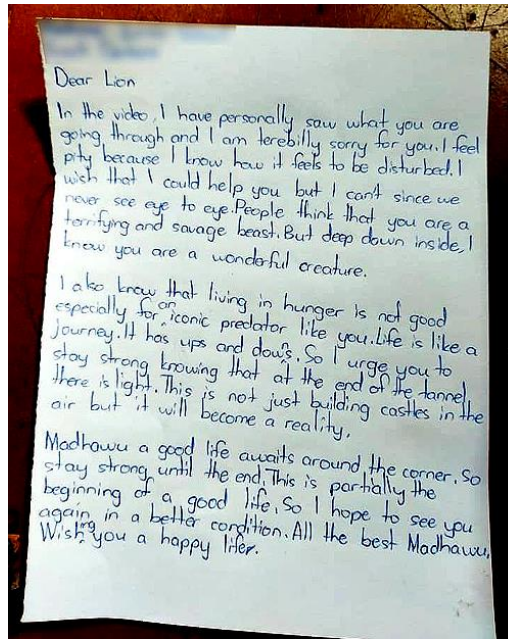 Dear Lion
In the video, I have personally saw what you are
going through and I am terebilly sorry for you. I feel
pity because I know how it feels to be disturbed. I
wish that I could help you but I can't since we
never see eye to eye. People think that you are a
terrifying and savage beast. But deep down inside, I
know you are a wonderful creature.
I also know that living in hunger is not good
especially for an iconic predator like you. Life is like a
journey. It has ups and downs. So I urge you to
stay strong knowing that at the end of the tannel
there is light. This is not just building castles in the
air but it will become a reality.
Madhawu a good life awaits around the corner. So
stay strong until the end. This is partially the
beginning of a good life. So I hope to see you
again in a better condition. All the best Madhawu.
Wishing you a happy lifer.